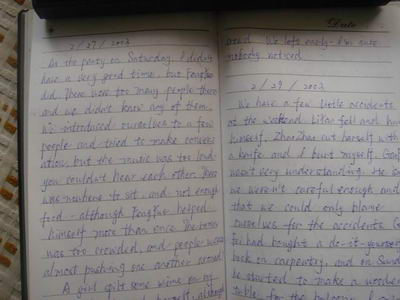 2/27/2013
At the party on Saturday I didn't
have a very good time, but Fangfan
did. There were too many people there
and we didn't know any of them.
We introduced ourselves to a few
people and tried to make convers
ation, but the music was too loud
you couldn't hear each other. There
was nowhere to sit, and not enough
food - although Fangfan helped
himself more than once. The house
was too crowded, and people were
almost pushing one another around
A girl spilt some wine on my
although
Date
We left early - I'm sure
nobody noticed.
2/29/2013
We have a few little accidents
at the weekend. Lifan fell and hurt
himself, ZhaoZhao cut herself with
a knife and I burnt myself.
wasn't very understanding. He said
we weren't careful enough and
that we could only blame
ourselves for the accidents.
had bought a do-it-yourself
book in carpentry, and on Sund
he started to make a wooden
table for the